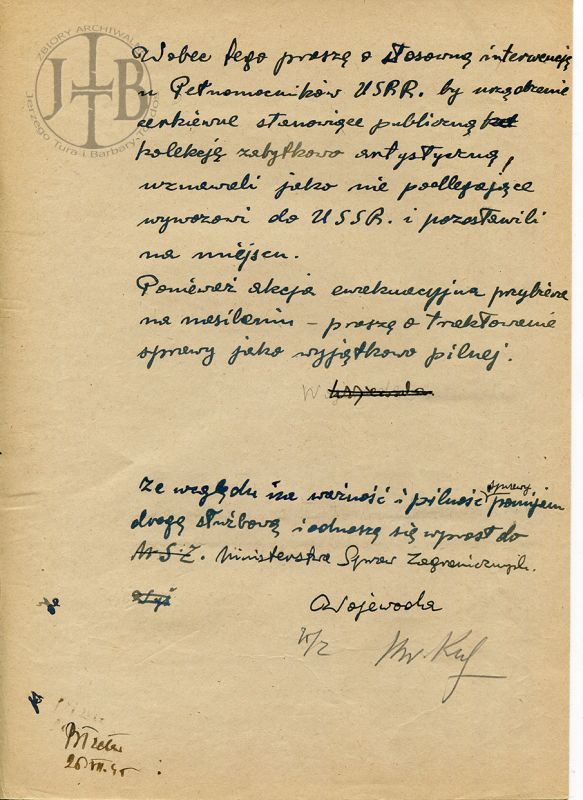 ZBIORY ARCHIWALNE
JTB
Jerzego Tura i Barbary
Wobec tego proszę o stosowną interwencję
u Pełnomocników USRR. by urządzenie
cerkiewne stanowiące publiczną
kolekcję zabytkowo artystyczną,
uznawali jako nie podlegające
wywozowi do USSR. i pozostawili
na miejscu.
Ponieważ akcja ewakuacyjna przybiera
na nasileniu – proszę o traktowanie
sprawy jako wyjątkowo pilnej.
Wojewoda
Ze względu na ważność i pilność sprawy pomijam
drogę służbową i odnoszę się wprost do
M S Z. Ministerstwa Spraw Zagranicznych.
Wojewoda
w/z
26 VII. 45